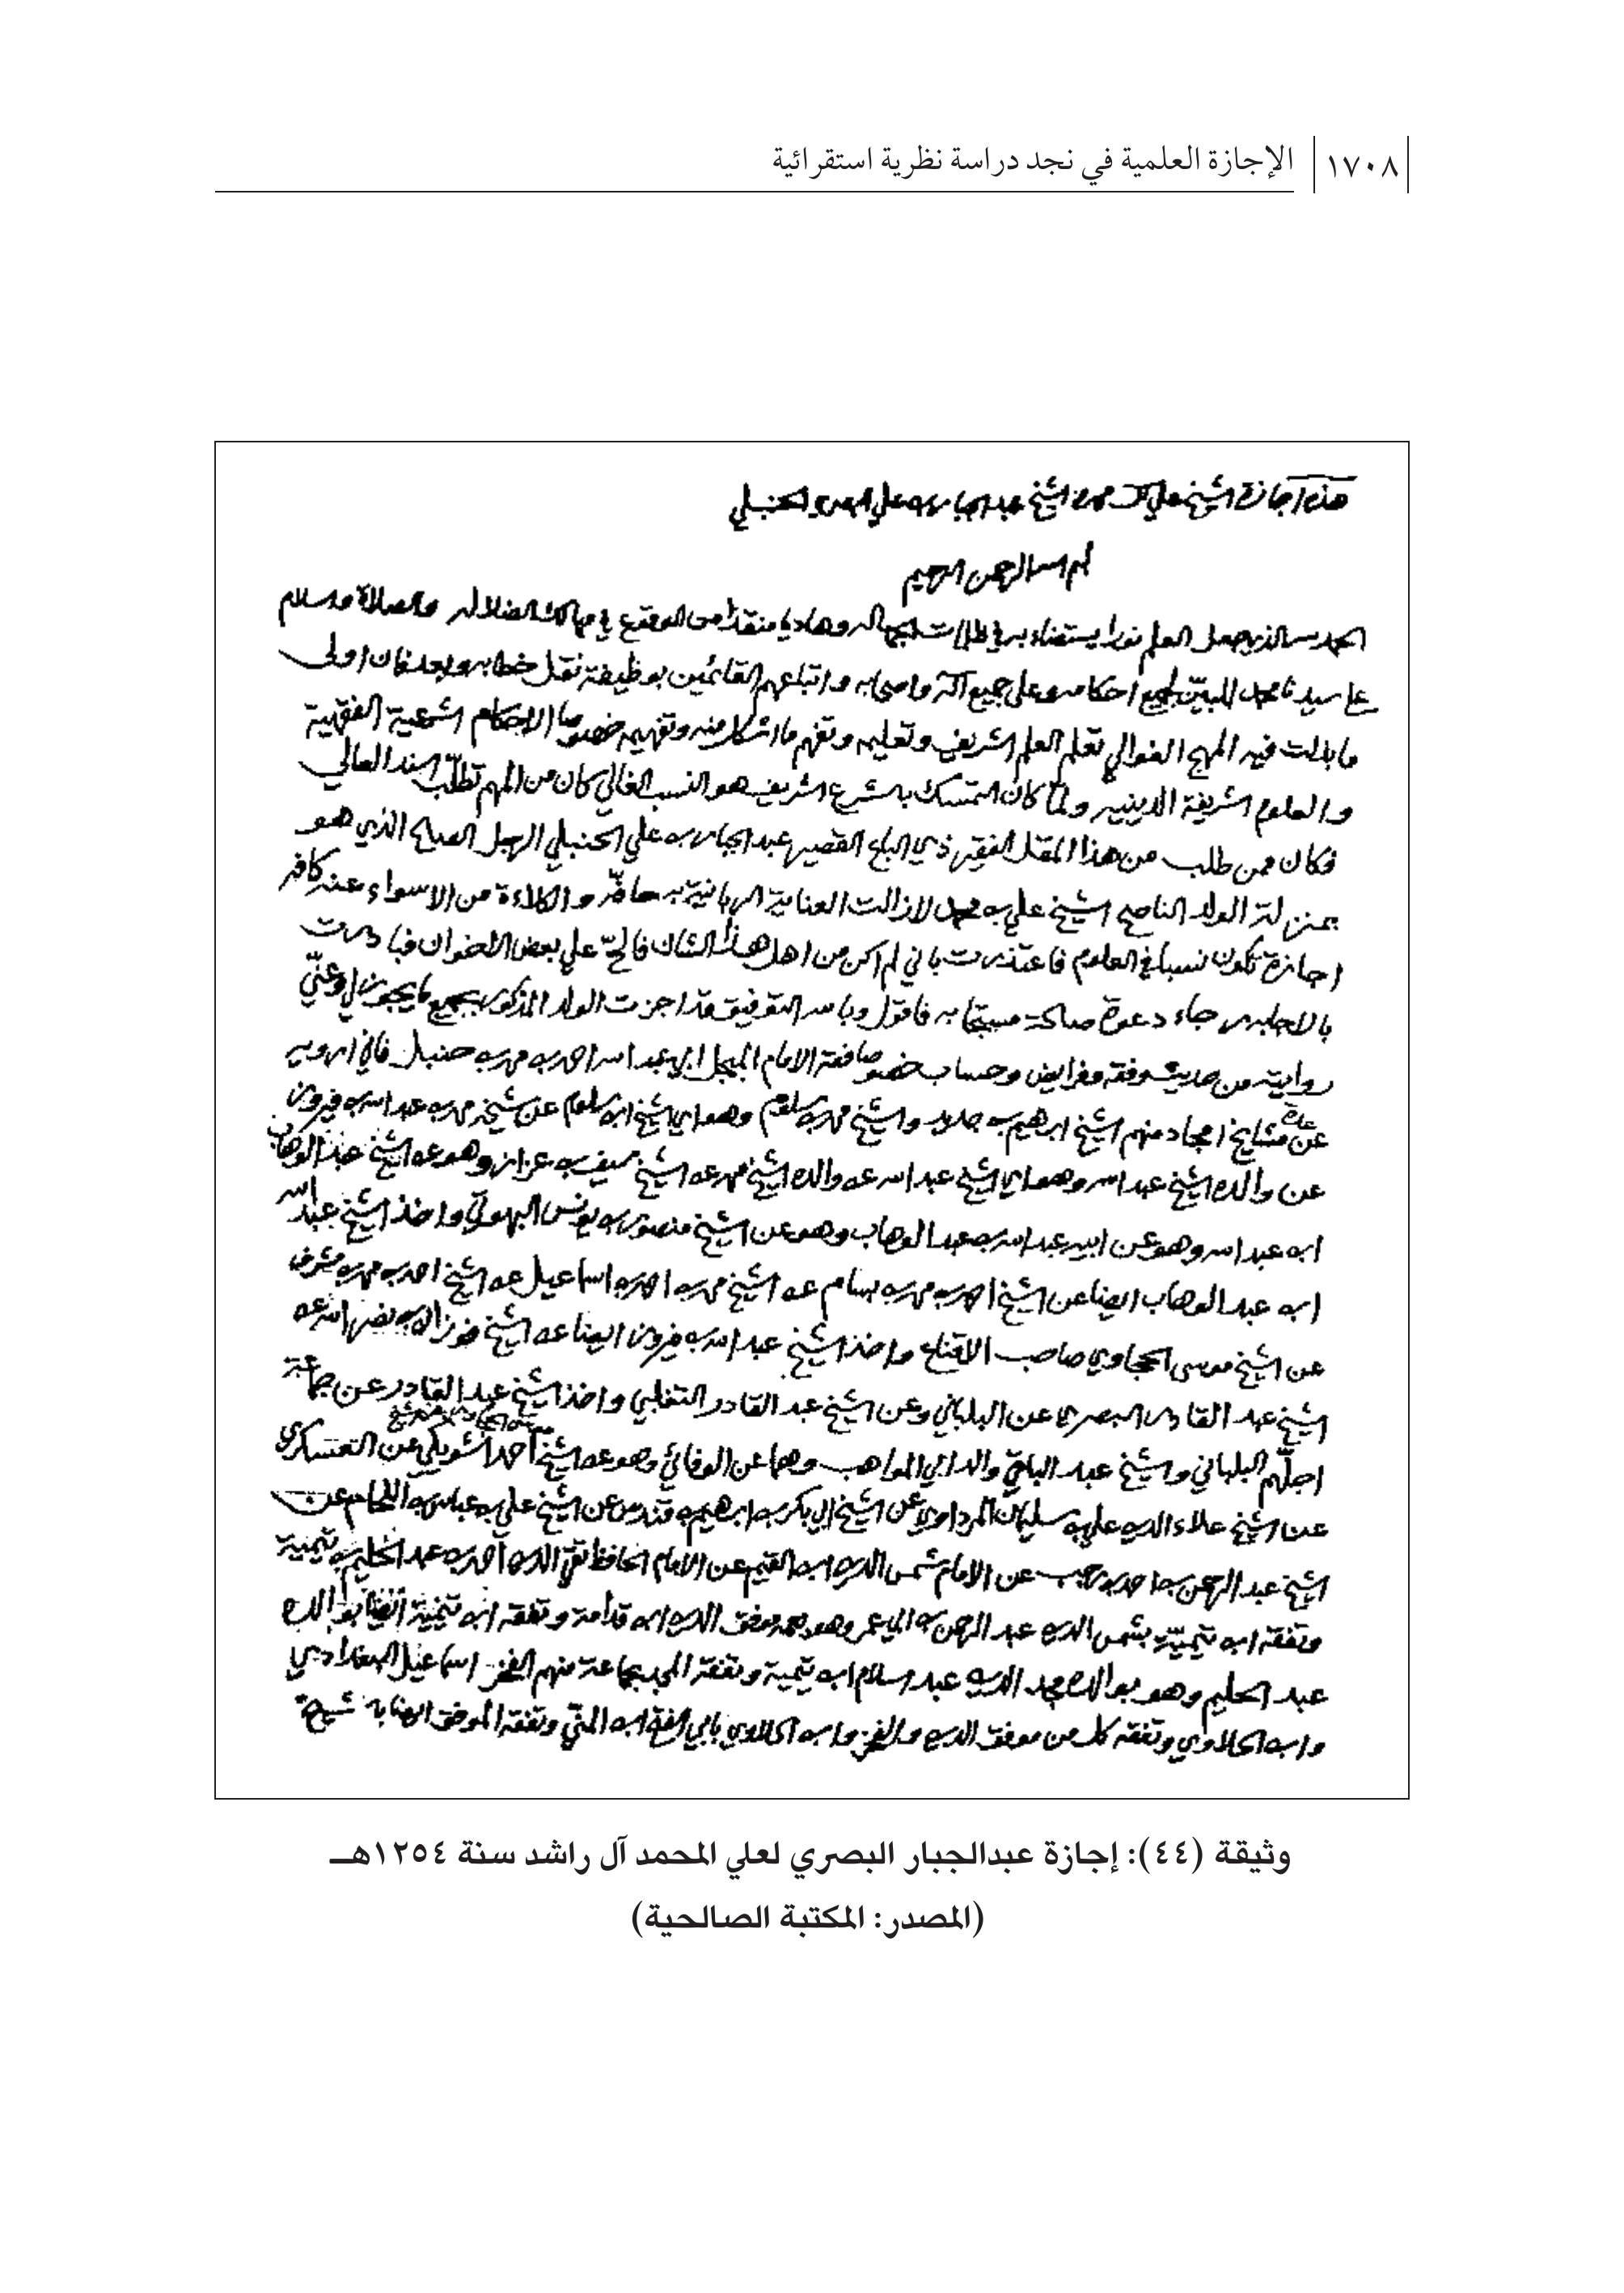 ١٧٠٨ الإجازة العلمية في نجد دراسة نظرية استقرائية
هذه اجازة الشيخ علي ال محمد من الشيخ عبد الجبار بن علي البصري الحنبلي
بسم الله الرحمن الرحيم
الحمد لله الذي جعل العلم نورا يستضاء به في ظلمات الجهالة وهاديا منقذا من الوقوع في مهالك الضلالة والصلاة والسلام
على سيدنا محمد المبيّن لجميع احكامه وعلى جميع آله واصحابه واتباعهم القائمين بوظيفة نقل خطابه وبعد فان اولى
ما بذلت فيه المهج الغوالي تعلم العلم الشريف وتعليمه وتفهم ما اشكل منه وتفهيمه خصوصا الاحكام الشرعية الفقهية
والعلوم الشريفة الدينية ولمّا كان التمسك بالشرع الشريف هو النسب الغالي كان من المهم تطلّب السند العالي
فكان ممن طلب من هذا المقل الفقير ذي الباع القصير عبد الجبار بن علي الحنبلي الرجل الصالح الذي هو
بمنزلة الولد الناصح الشيخ علي بن محمد لازالت العناية الربانية به حافّة والكلاءة من الاسواء عنه كافة
اجازة تكون نسبا في العلوم فاعتذرت باني لم اكن من اهل هذا الشان فالحّ علي بعض الاخوان فبادرت
بالاجابة رجاء دعوة صالحة مستجابه فاقول وبالله التوفيق قد اجزت الولد المذكور بجميع ما يجوز لي وعنّي
روايته من حديث وفقه وفرايض وحساب خصوصا فقه الامام المبجل ابي عبد الله احمد بن محمد بن حنبل فاني ارويه
عن عدة مشايخ امجاد منهم الشيخ ابرهيم بن جديد والشيخ محمد بن سلوم وهو اي الشيخ ابن سلوم عن شيخه محمد بن عبد الله بن فيروز
عن والده الشيخ عبد الله وهو اي الشيخ عبد الله عن والده الشيخ محمد عن الشيخ سيف بن عزاز وهو عن الشيخ عبد الوهاب
ابن عبد الله وهو عن ابيه عبد الله بن عبد الوهاب وهو عن الشيخ منصور بن يونس البهوتي واخذ الشيخ عبد الله
ابن عبد الوهاب ايضا عن الشيخ احمد بن محمد بن بسام عن الشيخ محمد بن احمد بن اسماعيل عن الشيخ احمد بن محمد بن مشرف
عن الشيخ موسى الحجاوي صاحب الاقناع واخذ الشيخ عبد الله بن فيروز ايضا عن الشيخ فوزان بن نصر الله عن
الشيخ عبد القادر البصري عن البلباني وعن الشيخ عبد القادر التغلبي واخذ الشيخ عبد القادر عن جماعة
اجلّهم البلباني والشيخ عبد الباقي والد ابي المواهب وهما عن الوفائي وهو عن الشيخ أحمد الشويكي عن العسكري
عن الشيخ علاء الدين علي بن سليمان المرداوي عن الشيخ ابي بكر بن ابرهيم بن قندس عن الشيخ علي بن عباس بن اللحام عن
الشيخ عبد الرحمن بن احمد بن رجب عن الامام شمس الدين ابن القيم عن الامام الحافظ تقي الدين أحمد بن عبد الحليم بن تيمية
وتفقه ابن تيمية بشمس الدين عبد الرحمن بن ابي عمر وهو بعمه موفق الدين ابن قدامة وتفقه ابن تيمية أيضا بوالده
عبد الحليم وهو بوالده مجد الدين عبد السلام ابن تيمية وتفقه المجد بجماعة منهم الفخر اسماعيل البغدادي
وابن الحلاوي وتفقه كل من موفق الدين والفخر وابن الحلاوي بابي الفتح ابن المنّي وتفقه الموفق ايضا بالشيخ
وثيقة (٤٤): إجازة عبدالجبار البصري لعلي المحمد آل راشد سنة ١٢٥٤هـ
(المصدر: المكتبة الصالحية)